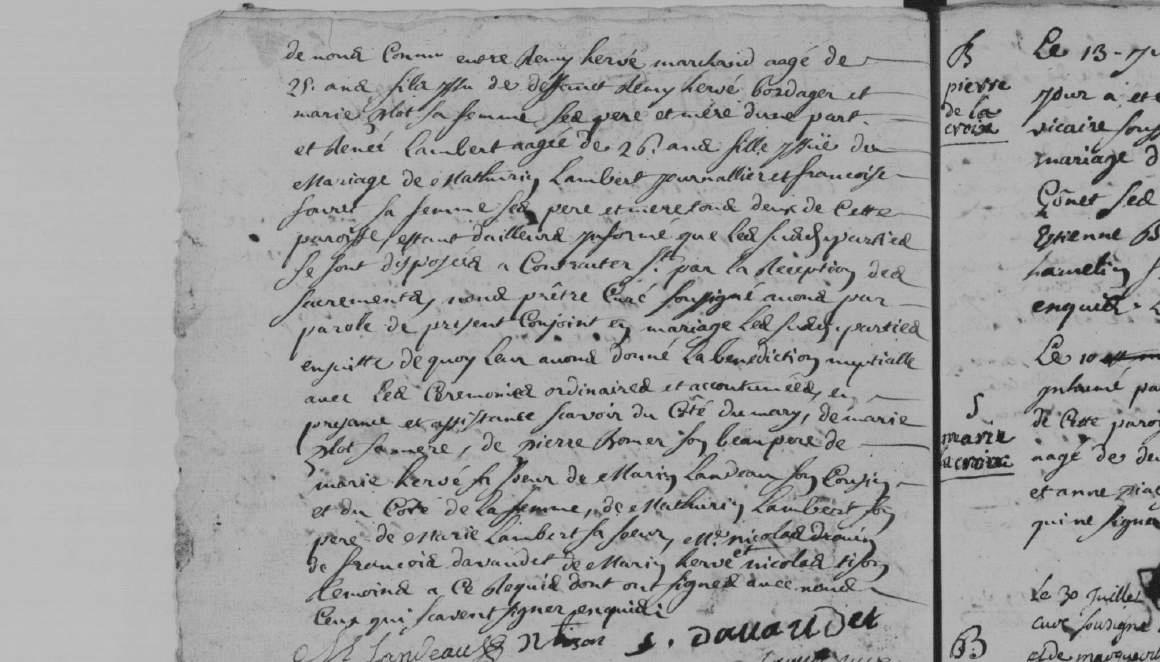 de nous Connu entre Remy hervé marchand aagé de
25. ans fils yssu de deffunct Remy hervé bordager et
marie plot sa femme ses pere et mére d'une part
et Renéé Lambert aagéé de 26. ans fille yssuë du
Mariage de Mathurin Lambert journallier et francoise
sa femme ses pere et mere tous deux de Cette
paroisse, estant d'ailleurs Informé que Les susd. parties
se sont disposéés a Contracter par la Réception des
sacrements, nous prêtre Curé soussigné avons par
parole de présent Conjoint en mariage Les susd. parties
ensuitte de quoy Leur avons donné La bénédiction nuptialle
avec Les Céremonies ordinaires et accoutuméés, en
présence et assistance scavoir du Côté du mary, de marie
plot sa mere, de pierre Romer son beau pere de
marie hervé sa soeur de Marin Landeau son Cousin
et du Côté de La femme, de Mathurin Lambert son
pere de Marie Lambert sa soeur, Mr. nicolas Drouin
de francois davaudet de Marin hervé et nicolas tison
temoins a Ce Requis dont ont signés avec nous
Ceux qui scavent signer enquis.
M Landeau N tizon f. DavauDet
B
pierre
de la
croix
S
marie
lacroix
B
Le 13
jour a et
vicaire sous
mariage d
Gônet ses
Estienne B
hamelin
enquis
Le 10
Inhumé pa
de Cette paroi
aagé de de
et anne
qui ne signe
Le 30 Juillet
curé sousigné